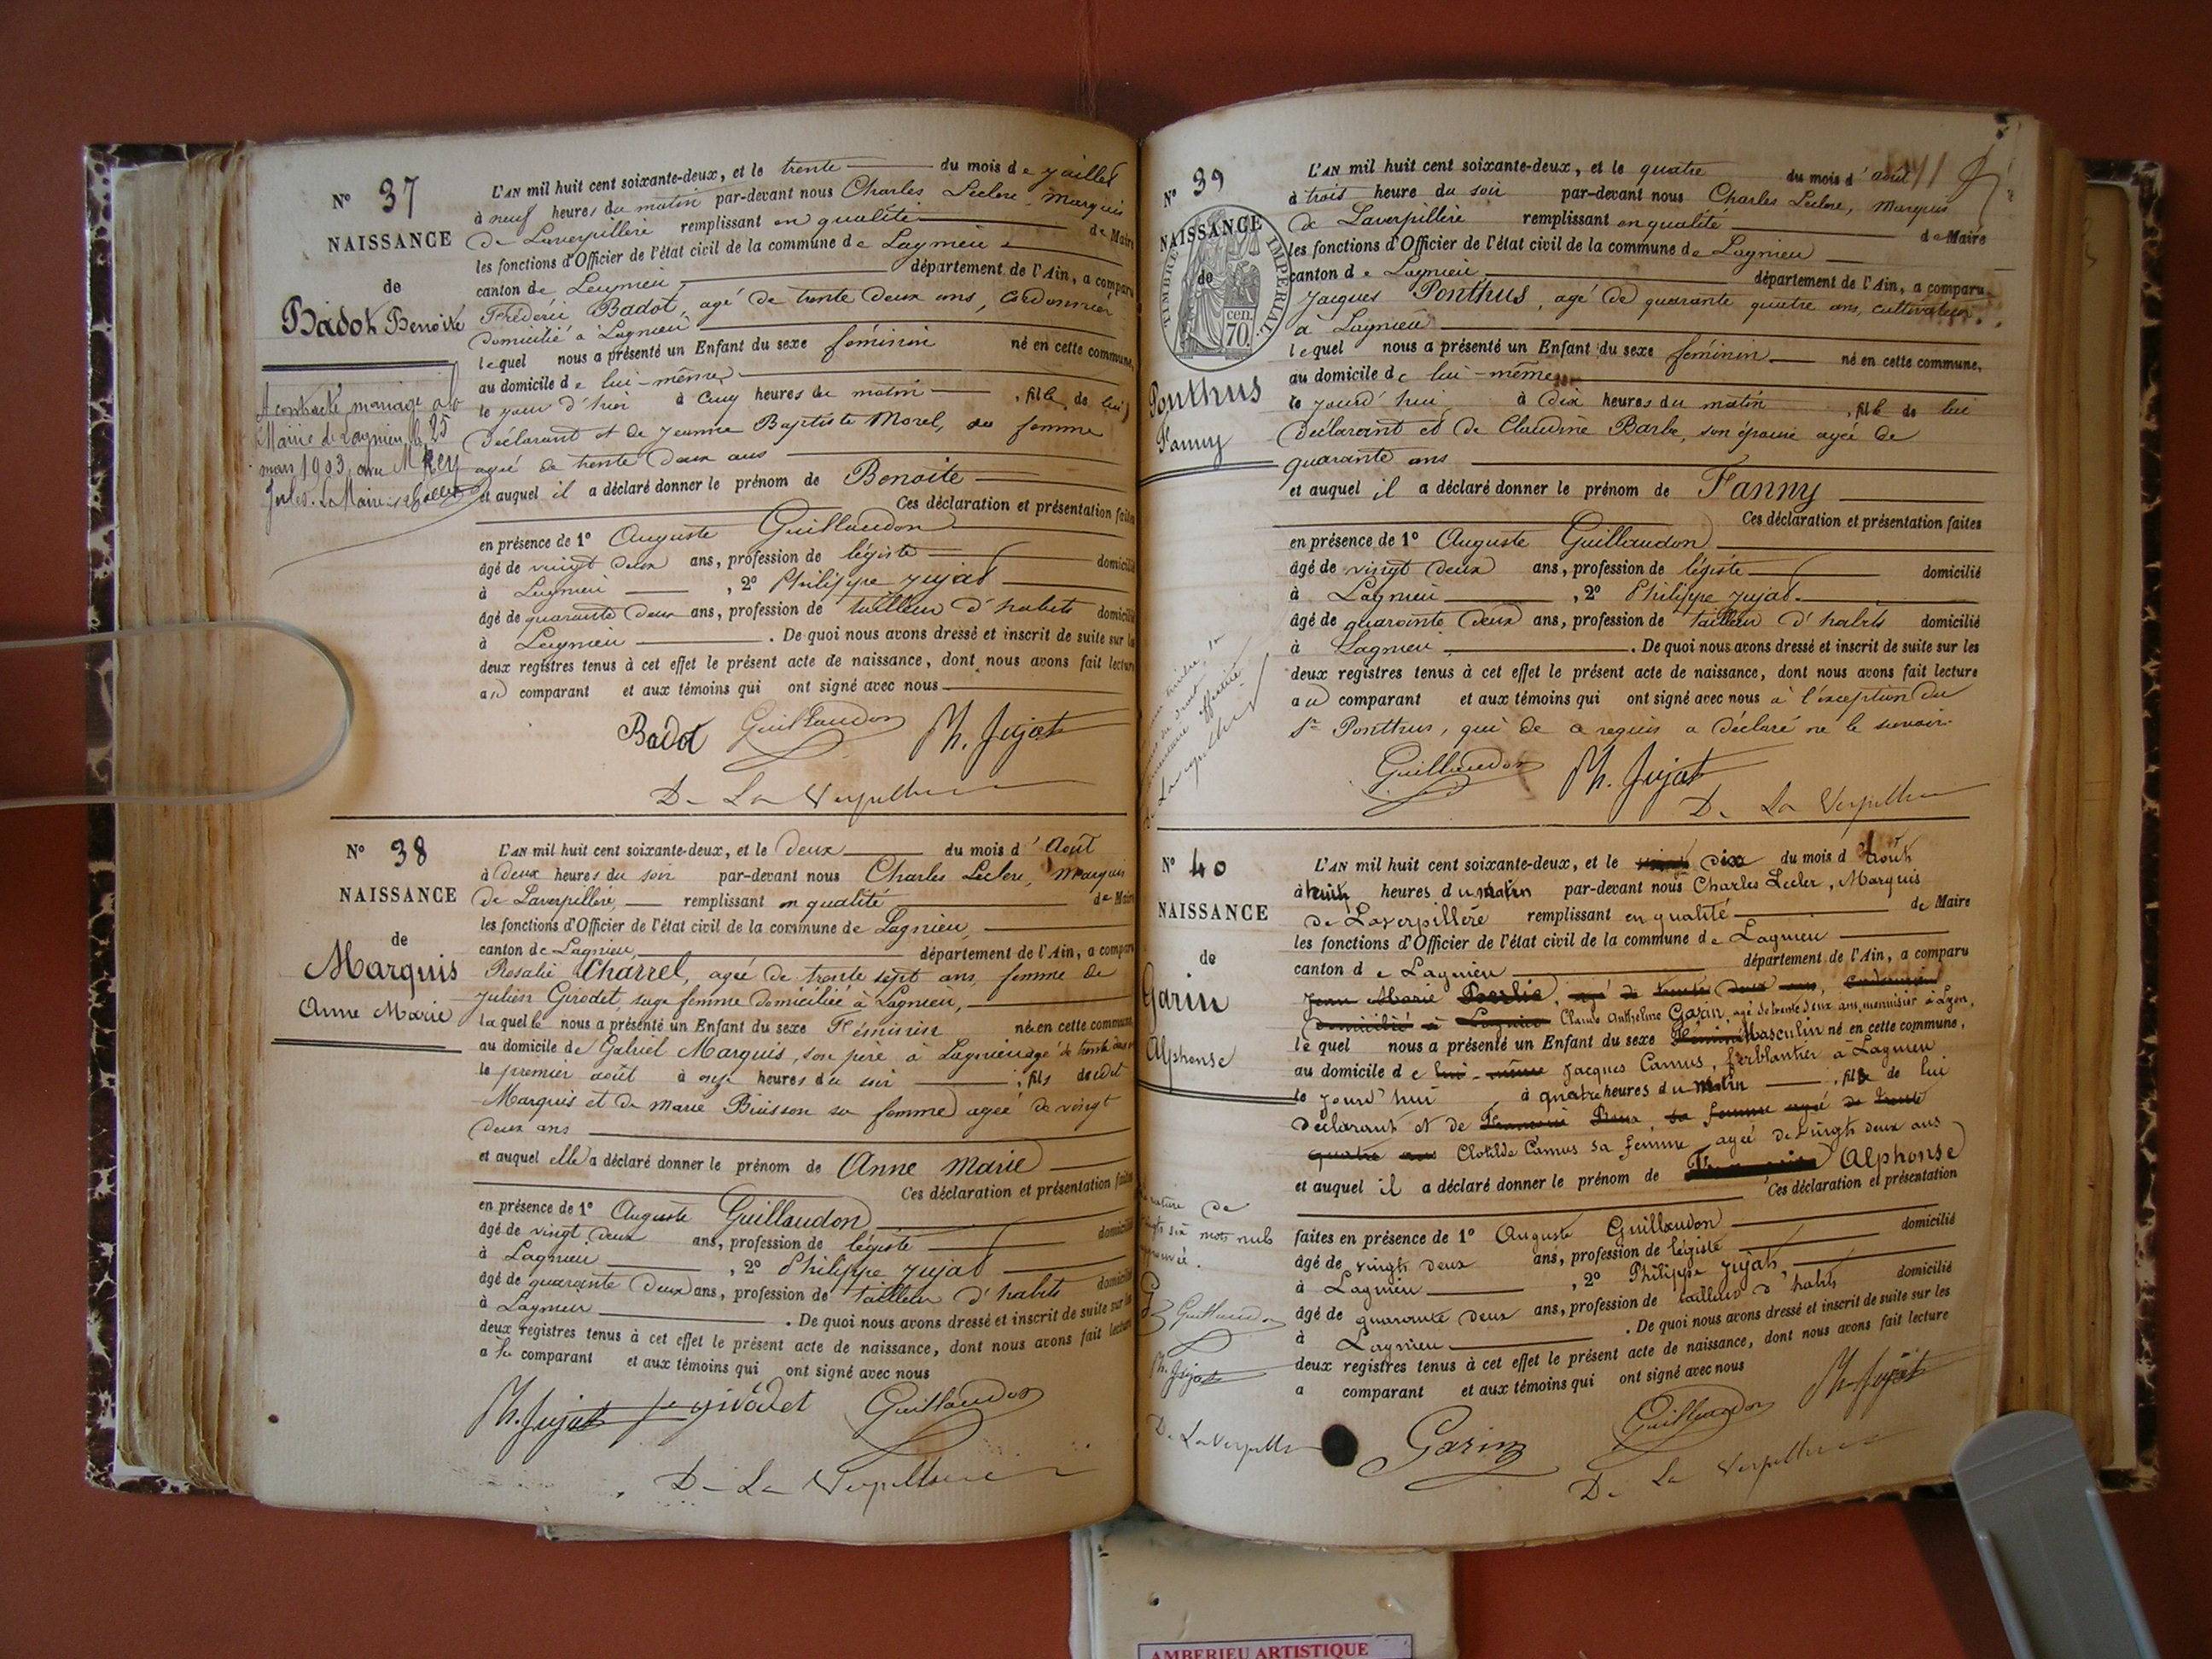 N° 37
NAISSANCE
de
Badot Benoite
A contracté mariage à la
Mairie de Lagnieu, le 25
mars 1903, avec M Rey
Jules. Le Maire
L'AN mil huit cent soixante-deux, et le trente du mois de juillet
à neuf heures du matin par-devant nous Charles Leclerc, Marquis
de Laverpillère remplissant en qualité de Maire
les fonctions d'Officier de l'état civil de la commune de Lagnieu
canton de Lagnieu département de l'Ain, a comparu
Frédéric Badot, agé de trente deux ans, cordonnier
domicilié à Lagnieu
lequel nous a présenté un Enfant du sexe féminin né en cette commune,
au domicile de lui-même,
le jour d'hier à cinq heures du matin, fille de lui
déclarant et de Jeanne Baptiste Morel, sa femme
agée de trente deux ans
et auquel il a déclaré donner le prénom de Benoite
Ces déclaration et présentation faites
en présence de 1° Auguste Guillaudon
âgé de vingt deux ans, profession de légiste domicilié
à Lagnieu, 2° Philippe Jujat
âgé de quarante deux ans, profession de tailleur d'habits domicilié
à Lagnieu. De quoi nous avons dressé et inscrit de suite sur les
deux registres tenus à cet effet le présent acte de naissance, dont nous avons fait lecture
au comparant et aux témoins qui ont signé avec nous
Badot Guillaudon Ph. Jujat
De La Verpillière
N° 38
NAISSANCE
de
Marquis
Anne Marie
L'AN mil huit cent soixante-deux, et le deux du mois d'Août
à deux heures du soir par-devant nous Charles Leclerc, Marquis
de Laverpillère remplissant en qualité de Maire
les fonctions d'Officier de l'état civil de la commune de Lagnieu,
canton de Lagnieu, département de l'Ain, a comparu
Rosalie Charrel, agée de trente sept ans, femme de
Julien Girodet sage femme domiciliée à Lagnieu,
laquelle nous a présenté un Enfant du sexe Féminin né en cette commune
au domicile de Gabriel Marquis, son père à Lagnieu agé de trente
le premier août à onze heures du soir, fils dudit
Marquis et de Marie Buisson sa femme agée de vingt
deux ans
et auquel elle a déclaré donner le prénom de Anne Marie
Ces déclaration et présentation faites
en présence de 1° Auguste Guillaudon
âgé de vingt deux ans, profession de légiste domicilié
à Lagnieu, 2° Philippe Jujat
âgé de quarante deux ans, profession de tailleur d'habits domicilié
à Lagnieu. De quoi nous avons dressé et inscrit de suite sur les
deux registres tenus à cet effet le présent acte de naissance, dont nous avons fait lecture
a la comparant et aux témoins qui ont signé avec nous
Ph. Jujat fe girodet Guillaudon
De La Verpillière
N° 39
NAISSANCE
de
TIMBRE IMPERIAL
cen.
70.
Ponthus
Fanny
L'AN mil huit cent soixante-deux, et le quatre du mois d'août
à trois heure du soir par-devant nous Charles Leclerc, Marquis
de Laverpillère remplissant en qualité de Maire
les fonctions d'Officier de l'état civil de la commune de Lagnieu
canton de Lagnieu département de l'Ain, a comparu
Jacques Ponthus, agé de quarante quatre ans, cultivateur
à Lagnieu
lequel nous a présenté un Enfant du sexe féminin né en cette commune,
au domicile de lui-même
le jourd'hui à dix heures du matin, fille de lui
déclarant et de Claudine Barbe, son épouse agée de
quarante ans
et auquel il a déclaré donner le prénom de Fanny
Ces déclaration et présentation faites
en présence de 1° Auguste Guillaudon
âgé de vingt deux ans, profession de légiste domicilié
à Lagnieu, 2° Philippe Jujat
âgé de quarante deux ans, profession de tailleur d'habits domicilié
à Lagnieu. De quoi nous avons dressé et inscrit de suite sur les
deux registres tenus à cet effet le présent acte de naissance, dont nous avons fait lecture
au comparant et aux témoins qui ont signé avec nous à l'exception du
Sr Ponthus, qui de ce requis a déclaré ne le savoir
Guillaudon Ph. Jujat
De La Verpillière
N° 40
NAISSANCE
de
Garin
Alphonse
L'AN mil huit cent soixante-deux, et le dix du mois d Août
à huit heures du matin par-devant nous Charles Lecler, Marquis
de Laverpillère remplissant en qualité de Maire
les fonctions d'Officier de l'état civil de la commune de Lagnieu
canton de Lagnieu département de l'Ain, a comparu
Jean Marie agé de trente deux ans, cordonnier
domicilié à Lagnieu Claude Anthelme Garin, agé de trente deux ans, menuisier à Lyon,
lequel nous a présenté un Enfant du sexe Féminin Masculin né en cette commune,
au domicile de lui-même Jacques Camus, ferblantier à Lagnieu
le jourd'hui à quatre heures du matin, fils de lui
déclarant et de sa femme agée de trente
quatre ans Clotilde Camus sa femme, agée de vingt deux ans
et auquel il a déclaré donner le prénom de Alphonse
Ces déclaration et présentation
faites en présence de 1° Auguste Guillaudon domicilié
âgé de vingt deux ans, profession de légiste
à Lagnieu, 2° Philippe Jujat,
âgé de quarante deux ans, profession de tailleur d'habits domicilié
à Lagnieu. De quoi nous avons dressé et inscrit de suite sur les
deux registres tenus à cet effet le présent acte de naissance, dont nous avons fait lecture
a comparant et aux témoins qui ont signé avec nous
six mots nuls
Guillaudon
Ph. Jujat
De La Verpillière
Garin Guillaudon Ph. Jujat
De La Verpillière
AMBERIEU ARTISTIQUE